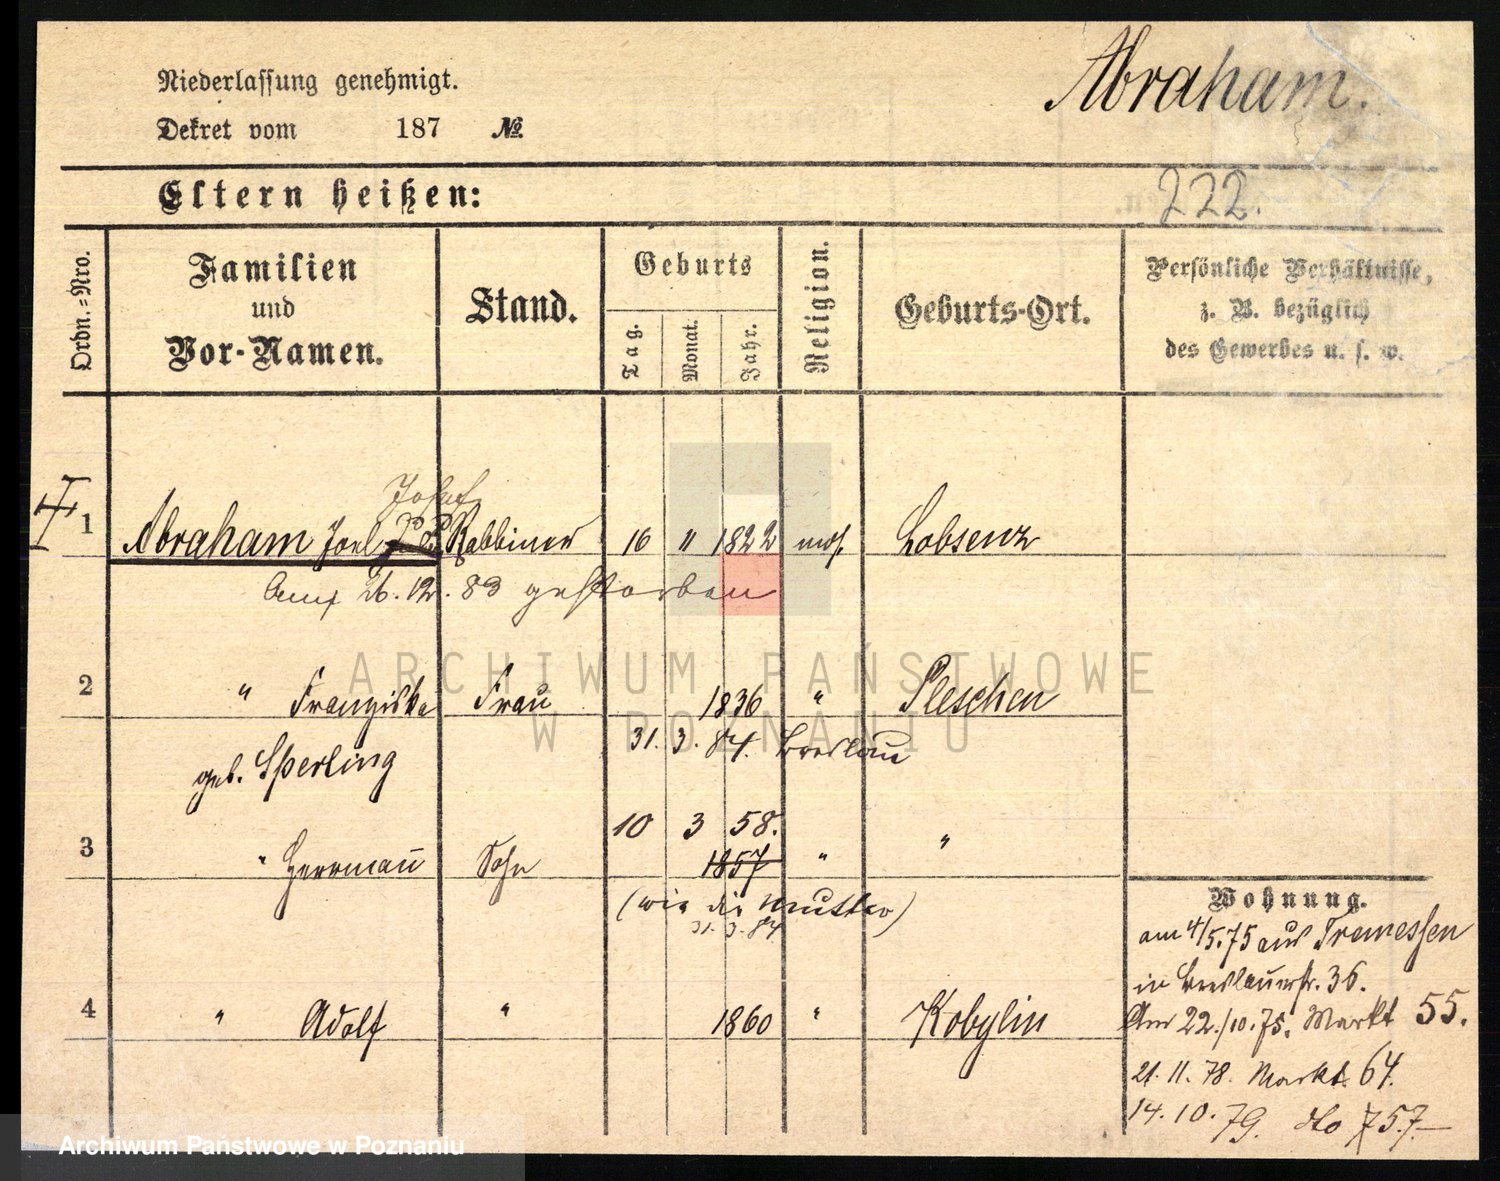 Niederlassung genehmigt.
Abraham.
Dekret vom 187 No.
Eltern heißen:
222.
Ordn.-Nro.
Familien und Vor-Namen.
Stand.
Geburts
Tag. Monat. Jahr.
Religion.
Geburts-Ort.
Persönliche Verhältnisse,
z. B. bezüglich
des Gewerbes u. s. w.
Josef
1 Abraham Joel Rabbiner 16 " 1822 mos. Lobsenz
26. 12. 83 gestorben
2 " Franziska Frau 1836 " Pleschen
31. 3. 84. Breslau
geb. Sperling
10 3 58.
3 " Herrmann Sohn 1857 " "
(wie die Mutter)
31. 3. 84
4 " Adolf " 1860 " Kobylin
Wohnung.
am 4/5.75 aus Tremessen
in Breslauerstr. 36.
Am 22./10.75. Markt 55.
21. 11. 78. Markt 64.
14. 10. 79. dto 57.
ARCHIWUM PAŃSTWOWE
W POZNANIU
Archiwum Państwowe w Poznaniu